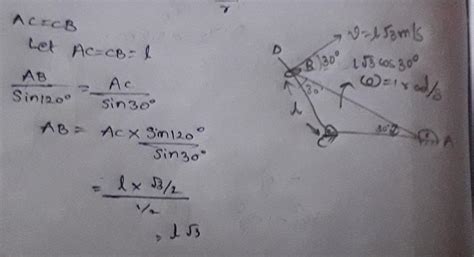 AC=CB
Let AC=CB=l
AB/Sin120° = AC/sin30°
AB = AC × Sin120°/Sin30°
= l × √3/2 / 1/2
= l√3
D
v=l√3 m/s
B
30°
l√3 cos30°
30
ω=1 rad/s
l
C
30°
A